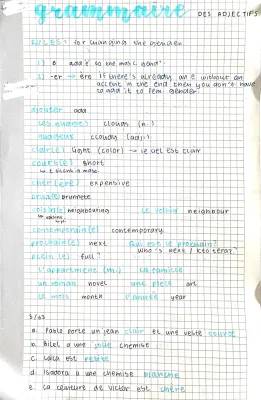 grammaire DES ADJECTIFS
RULES: for changing the gender
1) e add e to the masc. hand
2) -er → ère if there's already an e without an
accent in the end then you don't have
to add it to fem. gender!
ajouter add
les nuages clouds (n.)
nuageux cloudy (adj.)
clair(e) light (color) → le ciel est clair
court(e) short
cher (ère) expensive
brunnete
voisin(e) neighbouring le voisin neighbour
contemporain(e) contemporary
prochain(e) next Qui est le prochain?
who's next / kto teraz?
plein (e) full
l'appartement (m.) la famille
un roman novel une pièce art
le mois month l'année year
a. Pablo porte un jean clair et une veste courte
b. Bilel a une jolie chemise.
c. Laila est petite
d. Isadora a une chemise blanche
e. La ceinture de Victor est chère